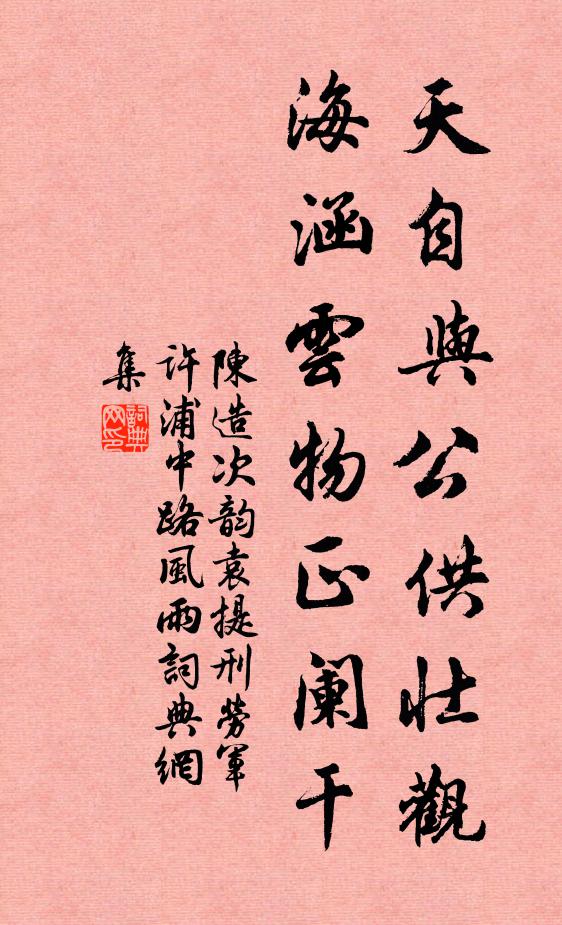 天自與公供壯觀
海涵雲物正阑干
陳造次韵袁提刑勞軍
許浦中路風雨詞典網
集
詞典网印